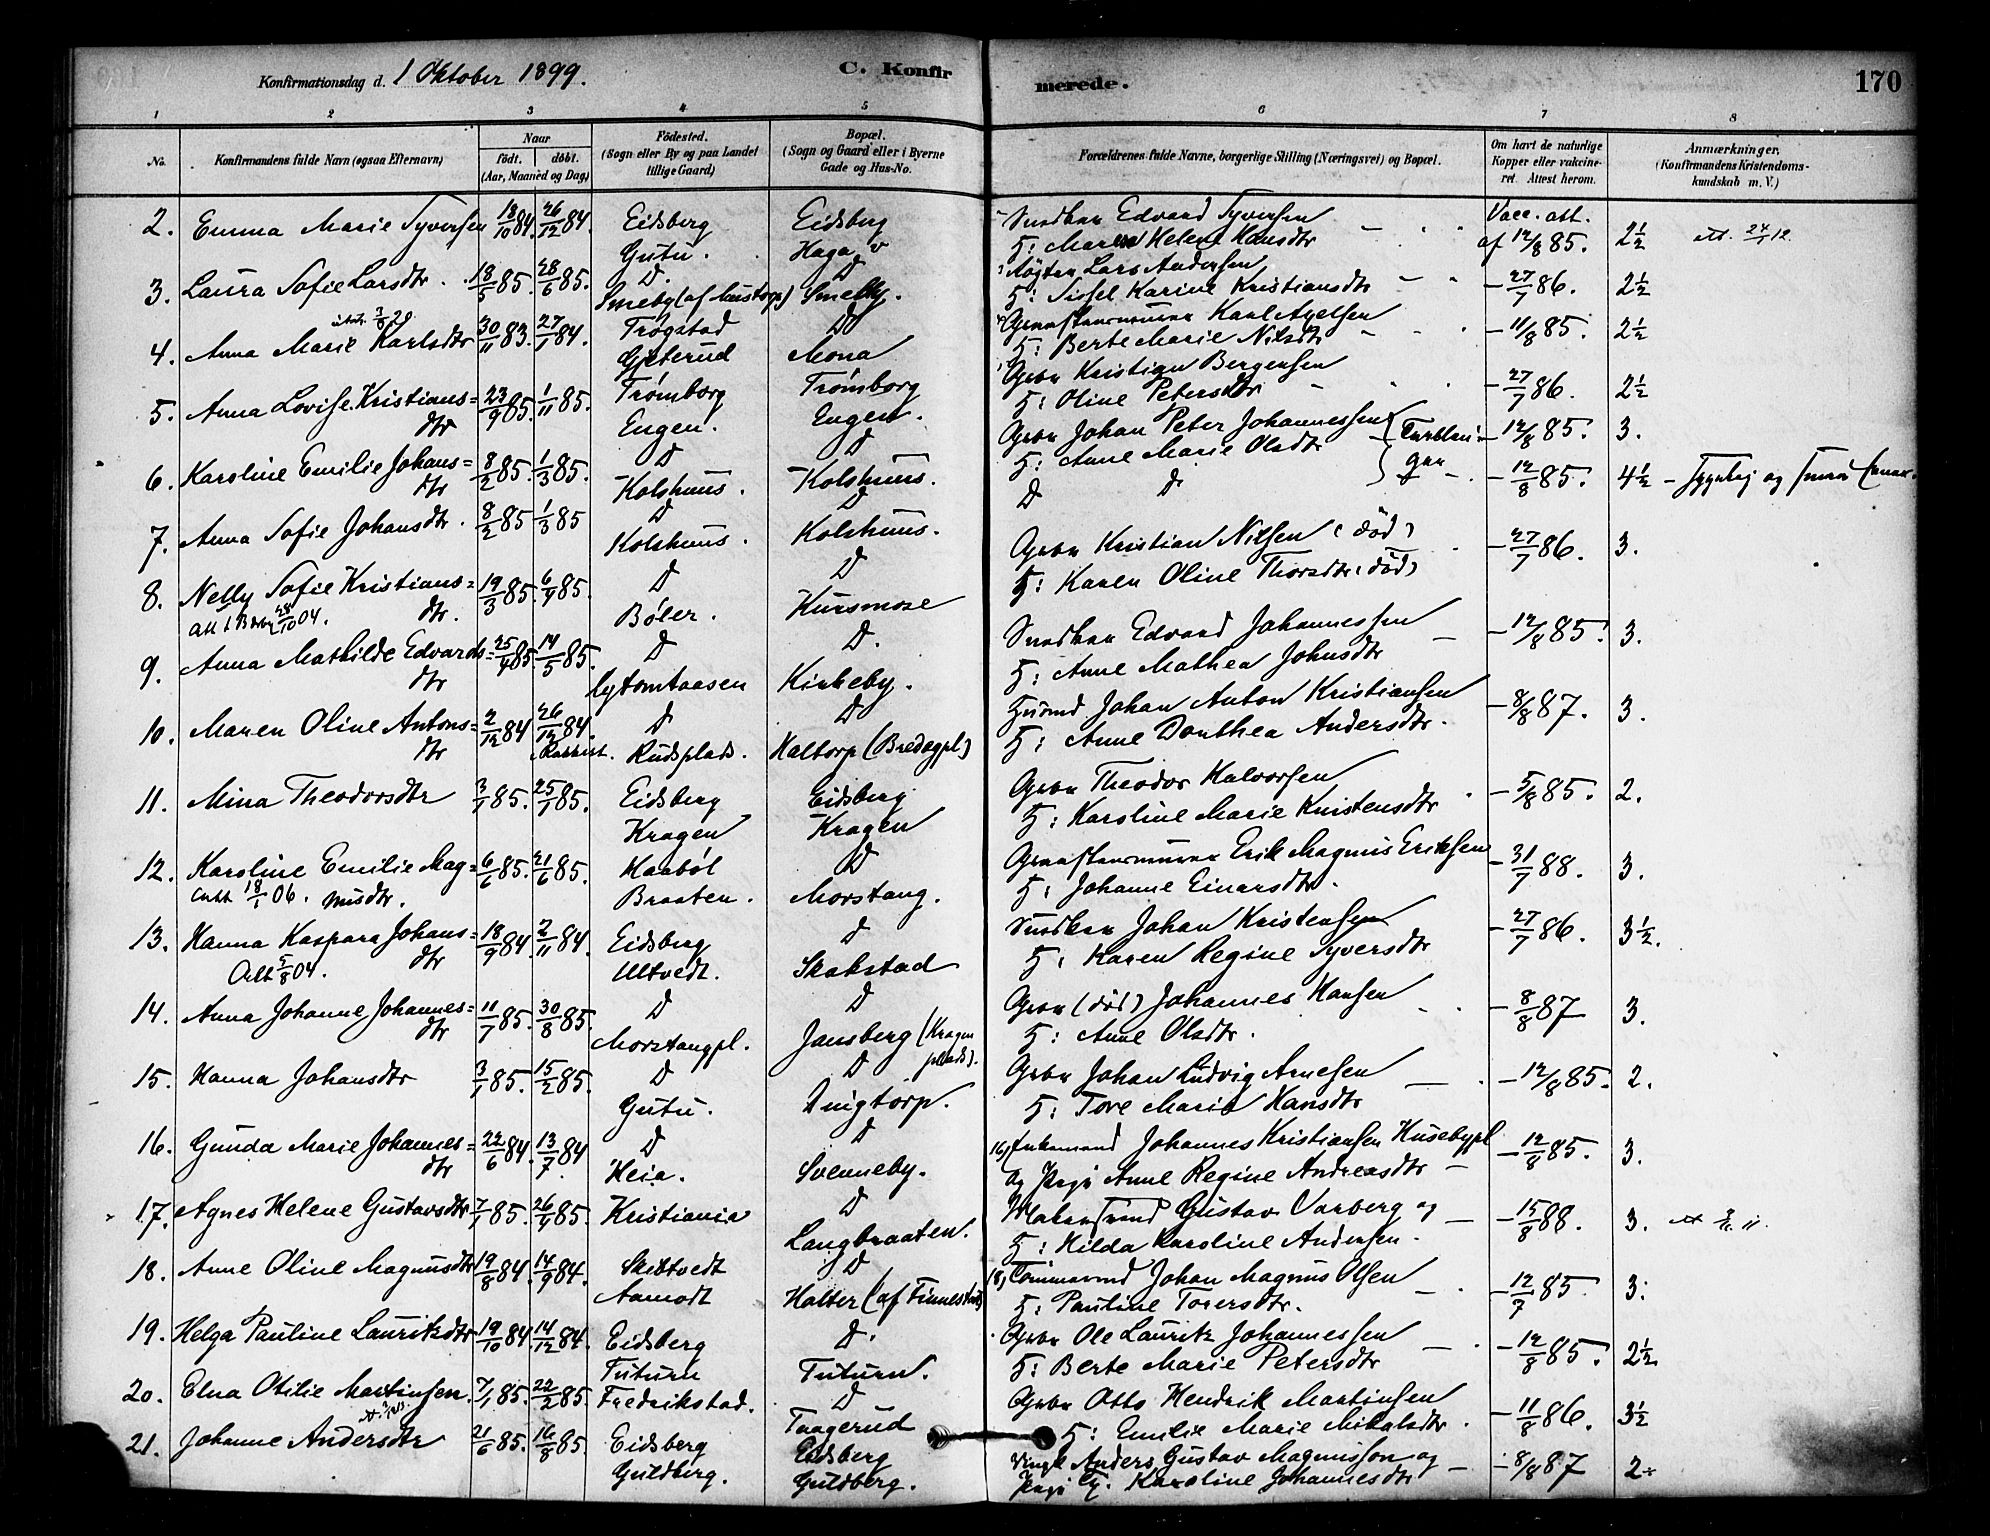 Konfirmationsdag d. 1 Oktober 1899. C. Konfirmerede. 170
1 2 3 4 5 6 7 8
No. Konfirmandens fulde Navn (ogsaa Efternavn) Naar født. døbt. (Aar, Maaned og Dag) Fødested. (Sogn eller By og paa Landet tillige Gaard) Bopæl. (Sogn og Gaard eller i Byerne Gade og Hus-No. Forældrenes fulde Navne, borgerlige Stilling (Næringsvei) og Bopæl. Om havt de naturlige Kopper eller vakcineret. Attest herom. Anmærkninger. (Konfirmandens Kristendomskundskab m. V.)
2. Emma Marie Syversen 18/10 84. 26/12 84. Eidsberg Eidsberg Edvard Syversen Vacc. att.
Gutu. Haga H: Maren Helene Hansdtr af 12/8 85. 2½ att. 24/1 12.
3. Laura Sofie Larsdtr. 18/5 85. 28/6 85. D. D Lars Andersen
Smeby (af Mustorp) Smeby. H: Sissel Karine Kristiansdtr - 27/7 86. 2½
4. Anna Marie Karlsdtr 30/11 83. 27/1 84. Trøgstad D Karl Axelsen
Gjeterud Mona H: Berte Marie Nilsdtr - 11/8 85. 2½
5. Anna Lovise Kristians= 23/9 85. 1/11 85. Trømborg Trømborg Gbr Kristian Bergersen
dtr Engen. Engen. H: Oline Petersdtr - 27/7 86. 2½
6. Karoline Emilie Johans= 8/2 85. 1/3 85. D D Gbr Johan Peter Johannessen - 12/8 85. 3.
dtr Kolshuus. Kolshuus. H: Anne Marie Olsdtr
7. Anna Sofie Johansdtr. 8/2 85 1/3 85 D D D D. - 12/8 85. 4½
Kolshuus. Kolshuus.
8. Nelly Sofie Kristians= 19/3 85. 6/4 85. D D Gbr Kristian Nilsen (død) - 27/7 86. 3.
28/10 04. dtr. Bøler. Huusmose H: Karen Oline Thorsdtr (død)
9. Anna Mathilde Edvards= 25/4 85. 14/5 85. D D. Edvard Johannessen - 12/8 85. 3.
dtr Kirkeby. H: Anne Mathea Johnsdtr
10. Maren Oline Antons= 2/12 84 26/12 84. D D Johan Anton Kristiansen - 8/8 87. 3.
dtr Rakkest. Rudsplads. Haltorp (Bredegpl) H: Anne Dorthea Andersdtr.
11. Mina Theodorsdtr 3/1 85. 25/1 85. Eidsberg Eidsberg Gbr Theodor Halvorsen - 5/8 85. 2.
Kragen Kragen H: Karoline Marie Kristensdtr
12. Karoline Emilie Mag= 6/6 85. 21/6 85. Haabøl D Erik Magnus Eriksen - 31/7 88. 3.
18/1 06. nusdtr. Braaten. Morstang. H: Johanne Einarsdtr.
13. Hanna Kaspara Johans= 18/9 84. 2/11 84. Eidsberg D Johan Kristensen - 27/7 86. 3½.
Att 5/8 04. dtr Ultvedt. Skakstad H: Karen Regine Syversdtr
14. Anna Johanne Johannes= 11/7 85. 30/8 85. D D Gbr (død) Johannes Hansen - 8/8 87 3.
dtr Morstangpl. Jansberg (Kragen plads). H: Anne Olsdtr.
15. Hanna Johansdtr 3/1 85. 15/2 85. D D Gbr Johan Ludvig Arnesen - 12/8 85. 2.
Gutu. Dingtorp. H: Tore Maria Hansdtr
16. Gunda Marie Johannes= 22/6 84. 13/7 84 D D 16) Enkemand Johannes Kristiansen Husebypl - 12/8 85. 3.
dtr Heia. Svenneby. og Pige Anne Regine Andreasdtr
17. Agnes Helene Gustavsdtr 7/1 85. 26/4 85. Kristiania D Gustav Varberg og - 15/8 88. 3.
Langbraaten. H: Hilda Karoline Andersen.
18. Anne Oline Magnusdtr 19/8 84. 14/9 84. Skibtvedt D 18) Johan Magnus Olsen - 12/7 85. 3.
Aamodt Holter (af Finnestad) H: Pauline Torersdtr.
19. Helga Pauline Lauritzdtr 19/10 84. 14/12 84. Eidsberg D. Gbr Ole Lauritz Johannessen - 12/8 85. 2½
Tuturn Tuturn. H: Berte Marie Petersdtr
20. Elna Otilie Martinsen. 7/1 85. 22/2 85. Fredrikstad. D Gbr Otto Hendrik Martinsen - 11/8 86. 3½
Taagerud H: Emilie Marie Mikalsdtr.
21. Johanne Andersdtr 21/6 85. 16/8 85 Eidsberg Eidsberg Anders Gustav Magnusson og - 8/8 87 2÷
Guldberg. Guldberg. Pige Karoline Johannesdtr